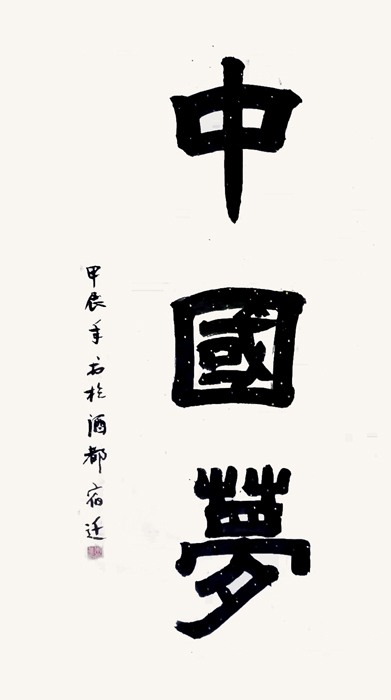 中國夢
甲辰年书於酒都宿迁